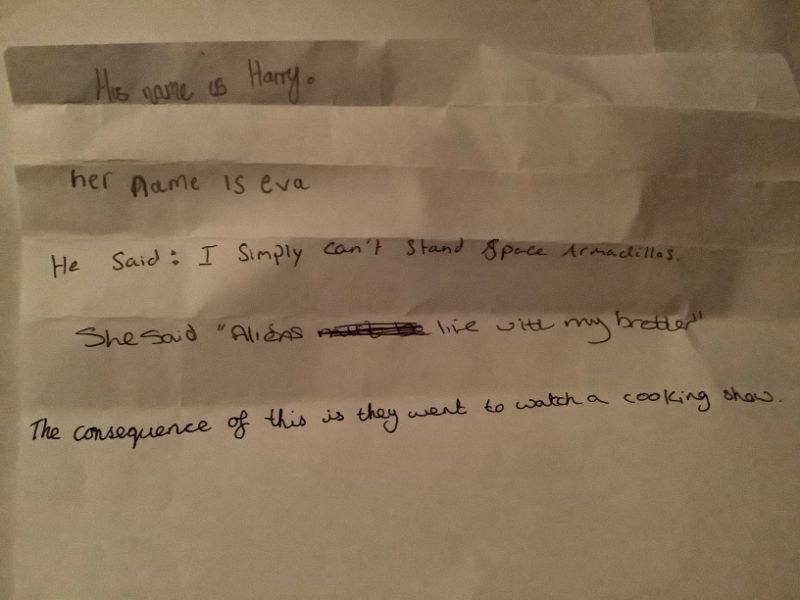 His name is Harry.
her name is eva
He Said: I Simply can't Stand Space Armadillos.
She Said "Aliens live with my brother"
The consequence of this is they went to watch a cooking show.